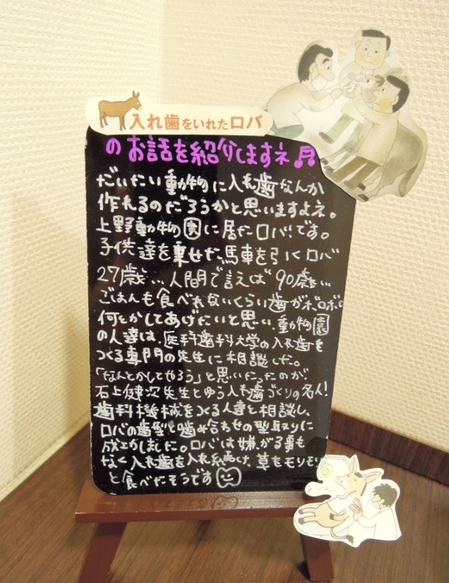 入れ歯をいれたロバ
のお話を紹介しますネ♬
だいたい動物に入れ歯なんか
作れるのだろうかと思いますよネ。
上野動物園に居たロバです。
子供達を乗せた馬車を引くロバ
27歳…人間で言えば90歳…
ごはんも食べれないくらい歯がボロボロ
何とかしてあげたいと思い、動物園
の人達は、医科歯科大学の入れ歯を
つくる専門の先生に相談した。
「なんとかしてやろう」と思いたったのが、
石上健次先生とゆう入れ歯づくりの名人!
歯科機械をつくる人達と相談し、
ロバの歯型と噛み合わせの型取りに
成功しました。ロバは嫌がる事も
なく入れ歯を入れ続け、草をモリモリ
と食べたそうです